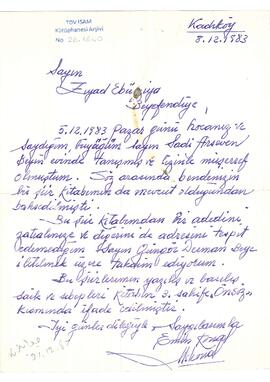 TDV İSAM
Kütüphanesi Arşivi
No
Kadıköy
8.12.1983
Sayın
Ziyad Ebüzziya
Beyefendiye,
5.12.1983 Pazar günü hocanız ve
saydığım, büyüğüm Sayın Sadi
Beyin evinde tanışma ve sizinle müşerref
olmuştum. Söz arasında bendenizin
bir şiir kitabımın da mevcut olduğundan
bahsedilmişti.
- Bu şiir kitabımdan bir adedini,
zatıalinize ve diğerini de adresini tespit
edemediğim Sayın Güngör Beye
iletilmek üzere takdim ediyorum.
- Bu şiirlerimin yazılış ve
saik ve sebepleri kitabın 3. sahife Önsöz
kısmında ifade edilmiştir.
İyi günler dileğiyle Saygılarımla
Emin